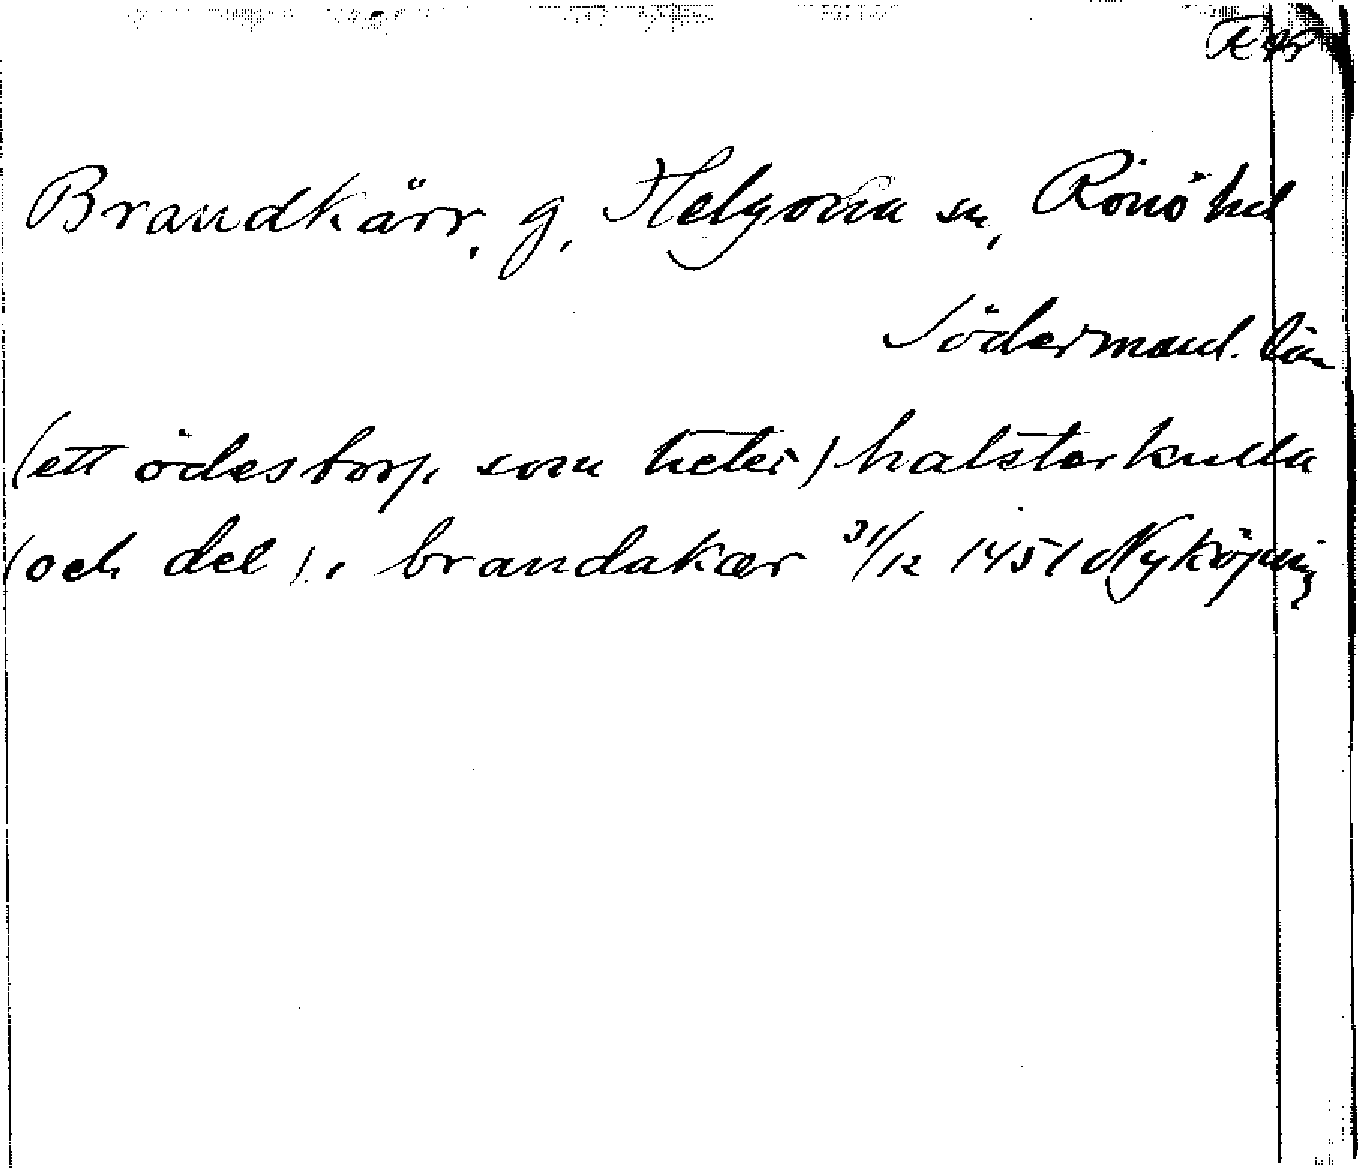 Brandkärr, g, Helgona sn, Rönö hd
Södermanl. län
(ett ödestorp, som heter) halstarkulla
(och del) i brandakær 31/12 1451 Nyköping